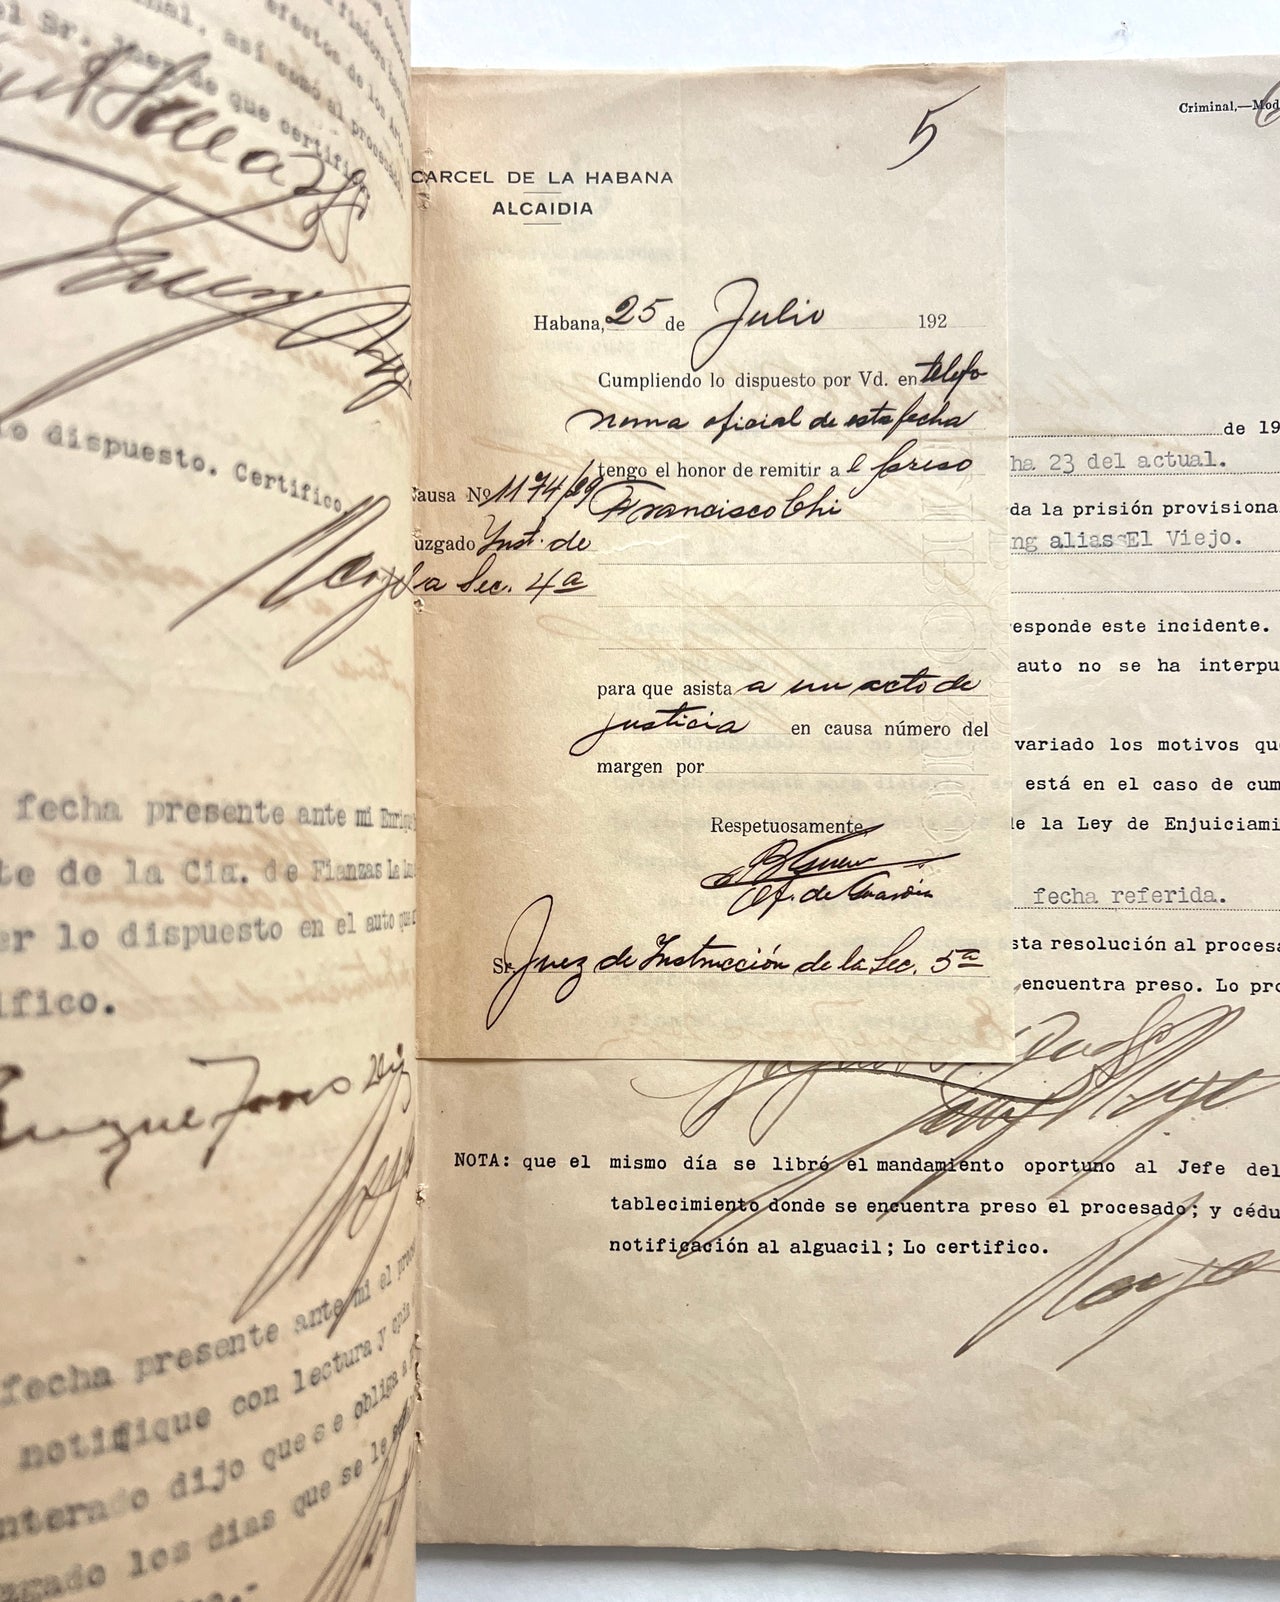 efectos de los
así como al procesado
el Sr. Juez de que certifico.
lo dispuesto. Certifico
fecha presente ante mi Enrique
te de la Cia. de Fianzas La
er lo dispuesto en el auto que
ifico.
Enrique
fecha presente ante mi el proc
notifique con lectura y copia
nterado dijo que se obliga a
zgado los dias que se le
5
CARCEL DE LA HABANA
ALCAIDIA
Habana, 25 de Julio 192
Cumpliendo lo dispuesto por Vd. en telefo
nema oficial de esta fecha
tengo el honor de remitir a l preso
Francisco Chi
Causa Nº 1174/29
uzgado Inst. de
la Sec. 4ª
para que asista a un acto de
justicia en causa número del
margen por
Respetuosamente,
Of. de Guardia
Sr. Juez de Instrucción de la Sec. 5ª
Criminal,—Mod
6
de 19
ha 23 del actual.
da la prisión provisiona
ng alias El Viejo.
esponde este incidente.
auto no se ha interpu
variado los motivos qu
está en el caso de cum
de la Ley de Enjuiciami
fecha referida.
sta resolución al procesa
encuentra preso. Lo pro
NOTA: que el mismo día se libró el mandamiento oportuno al Jefe del
tablecimiento donde se encuentra preso el procesado; y cédu
notificación al alguacil; Lo certifico.